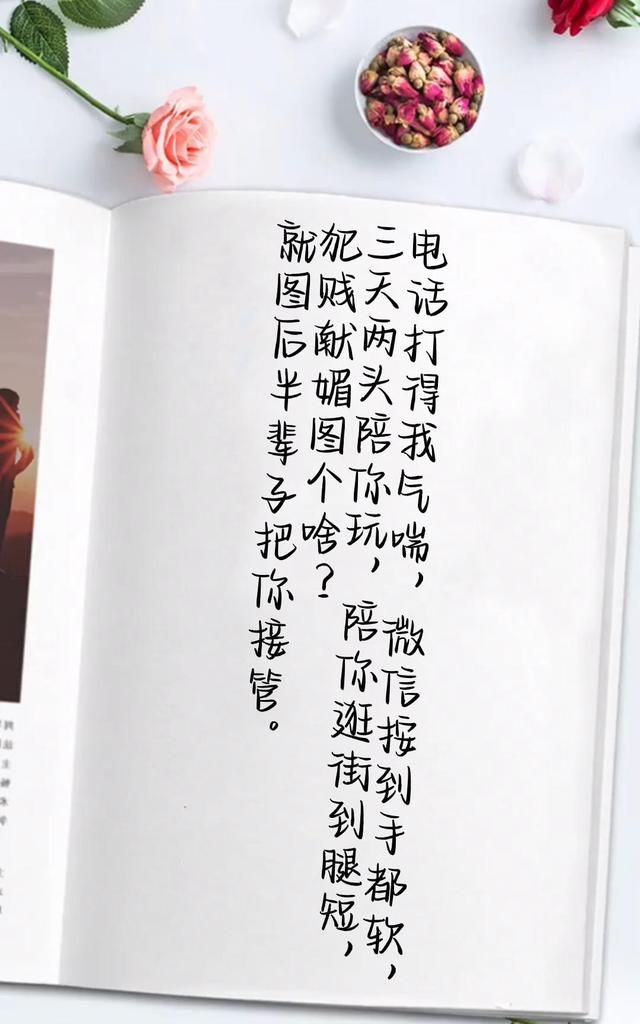 电话打得我气喘，微信按到手都软，
三天两头陪你玩，陪你逛街到腿短，
犯贱献媚图个啥？
就图后半辈子把你接管。